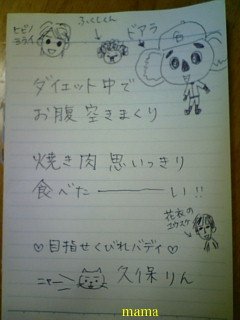 ヒビノ
ミライ
ふっくしくん
ドアラ
ダイエット中で
お腹空きまくり
焼き肉思いっきり
食べた――い!!
花衣の
ユウスケ
♡目指せくびれバディ♡
ニャー
久保りん
mama